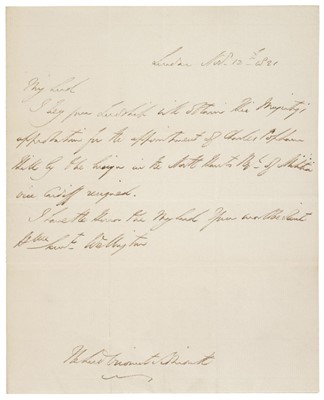 London Nov. 12th. 1821
My Lord
I beg your Lordship will obtain His Majesty's
approbation for the appointment of Charles
to be Ensign in the North Hants Rt. of Militia
vice resigned.
I have the Honor to be My Lord Your most obedient
Humble Servt. Wellington
The Lord Viscount Sidmouth